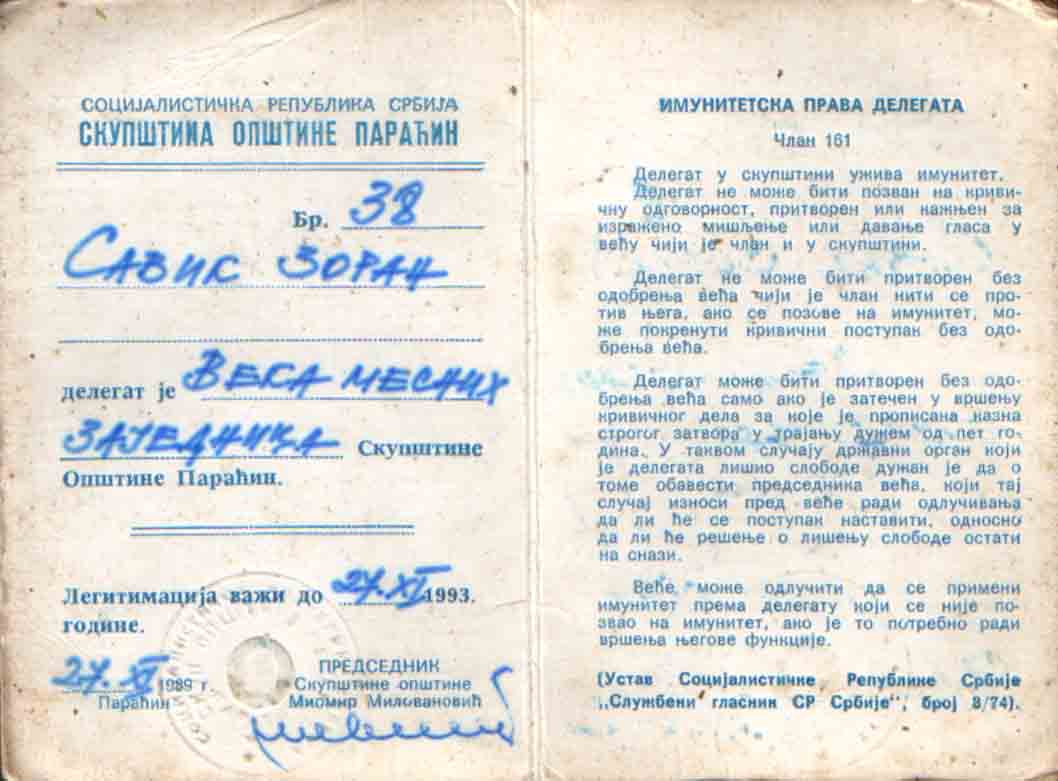 СОЦИЈАЛИСТИЧКА РЕПУБЛИКА СРБИЈА
СКУПШТИНА ОПШТИНЕ ПАРАЋИН
Бр. 38
САВИЋ ЗОРАН
делегат је ВЕЋА МЕСНИХ
ЗАЈЕДНИЦА Скупштине
Општине Параћин.
Легитимација важи до 27. XI 1993.
године.
27. XI 1989 г.
Параћин
ПРЕДСЕДНИК
Скупштине општине
Миомир Миловановић
ИМУНИТЕТСКА ПРАВА ДЕЛЕГАТА
Члан 161
Делегат у скупштини ужива имунитет.
Делегат не може бити позван на криви-
чну одговорност, притворен или кажњен за
изражено мишљење или давање гласа у
већу чији је члан и у скупштини.
Делегат не може бити притворен без
одобрења већа чији је члан нити се про-
тив њега, ако се позове на имунитет, мо-
же покренути кривични поступак без одо-
брења већа.
Делегат може бити притворен без одо-
брења већа само ако је затечен у вршењу
кривичног дела за које је прописана казна
строгог затвора у трајању дужем од пет го-
дина. У таквом случају државни орган који
је делегата лишио слободе дужан је да о
томе обавести председника већа, који тај
случај износи пред веће ради одлучивања
да ли ће се поступак наставити, односно
да ли ће решење о лишењу слободе остати
на снази.
Веће може одлучити да се примени
имунитет према делегату који се није по-
звао на имунитет, ако је то потребно ради
вршења његове функције.
(Устав Социјалистичке Републике Србије
„Службени гласник СР Србије", број 8/74).